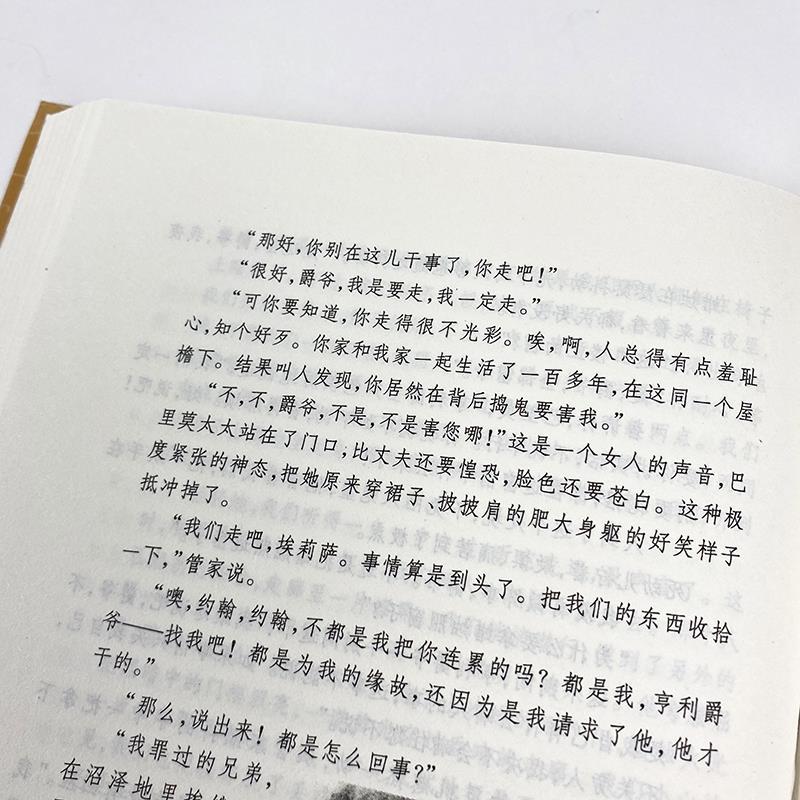 “那好，你别在这儿干事了，你走吧！”
“很好，爵爷，我是要走，我一定走。”
“可你要知道，你走得很不光彩。唉，啊，人总得有点羞耻
心，知个好歹。你家和我家一起生活了一百多年，在这同一个屋
檐下。结果叫人发现，你居然在背后捣鬼要害我。”
“不，不，爵爷，不是，不是害您哪！”这是一个女人的声音，巴
里莫太太站在了门口；比丈夫还要惶恐，脸色还要苍白。这种极
度紧张的神态，把她原来穿裙子、披披肩的肥大身躯的好笑样子
抵冲掉了。
“我们走吧，埃莉萨。事情算是到头了。把我们的东西收拾
一下，”管家说。
“噢，约翰，约翰，不都是我把你连累的吗？都是我，亨利爵
爷——找我吧！都是为我的缘故，还因为是我请求了他，他才
干的。”
“那么，说出来！都是怎么回事？”
“我罪过的兄弟，
在沼泽地里挨